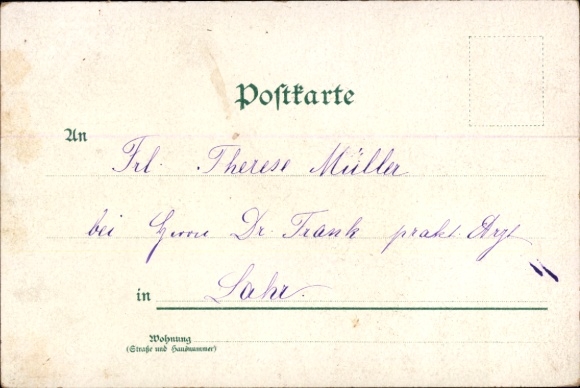 Postkarte
An
Frl. Therese Müller
bei Herrn Dr. Frank prakt. Arzt
in Lahr.
Wohnung
(Straße und Hausnummer)